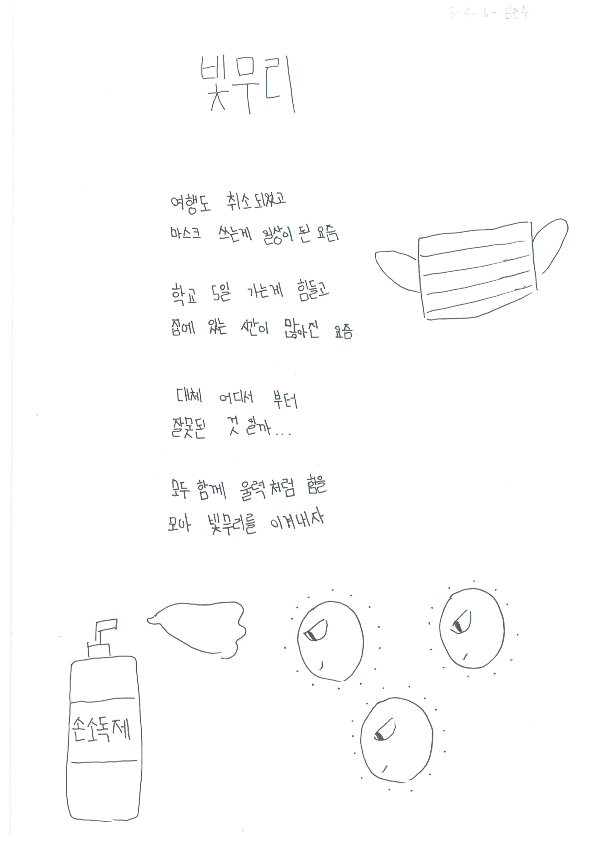 빛무리
여행도 취소되었고
마스크 쓰는게 일상이 된 요즘
학교 5일 가는게 힘들고
집에 있는 시간이 많아진 요즘
대체 어디서 부터
잘못된 것 일까...
모두 함께 울력처럼 힘을
모아 빛무리를 이겨내자
손소독제